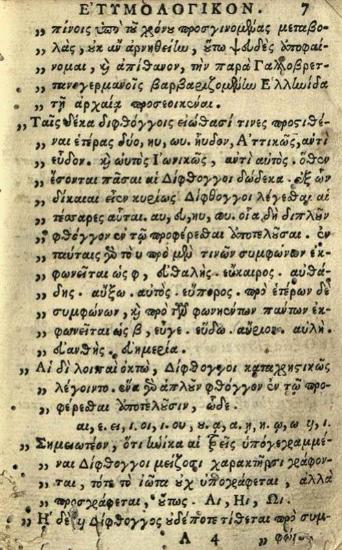 ΕΤΥΜΟΛΟΓΙΚΟΝ. 7
„ πίνοις ὑπὸ τοῦ χρόνου προσγινομένας μεταβο-
„ λὰς, οὐκ ἂν ἀρνηθείην, οὔπω ψευδὲς ὑποφαί-
„ νομαι, καὶ ἀπίθανον, τὴν παρὰ Γαλλοβρετ-
„ τανογερμανοῖς βαρβαριζομένην Ελληνίδα
„ τῇ ἀρχαίᾳ προσεοικέναι.
„ Ταῖς δέκα διφθόγγοις εἰώθασί τινες προστιθέ-
„ ναι ἑτέρας δύο, ηυ, ωυ. ηὗδον, Ἀττικῶς, ἀντὶ
„ εὗδον. καὶ ωὐτὸς Ἰωνικῶς, ἀντὶ αὐτός. ὅθεν
„ ἔσονται πᾶσαι αἱ Δίφθογγοι δώδεκα. ἐξ ὧν
„ δίκαιαι εἰσὶν κυρίως Δίφθογγοι λέγεσθαι αἱ
„ τέσσαρες αὗται. αυ, ευ, ηυ, ωυ. οἷα δὴ διπλοῦν
„ φθόγγον ἐν τῷ προφέρεσθαι ἀποτελοῦσαι. ἐν
„ ταύταις γὰρ τὸ υ πρὸ μὲν τινῶν συμφώνων ἐκ-
„ φωνεῖται ὡς φ, εὐθαλής. εὔκαιρος. αὐθά-
„ δης. αὔξω. αὐτός. εὔπορος. πρὸ ἑτέρων δὲ
„ συμφώνων, καὶ πρὸ τῶν φωνηέντων πάντων ἐκ-
„ φωνεῖται ὡς β, εὖγε. εὕδω. αὔριον. αὐλή.
„ εὐανθής. εὐημερία.
„ Αἱ δὲ λοιπαὶ ὀκτὼ, Δίφθογγοι καταχρηστικῶς
„ λέγοιντο. ἕνα γὰρ ἁπλοῦν φθόγγον ἐν τῷ προ-
„ φέρεσθαι ἀποτελοῦσιν, ὧδε.
αι, ει, οι, ου, υι, ᾳ, ῃ, ῳ.
„ Σημειωτέον, ὅτι ἡνίκα αἱ τρεῖς ὑπογεγραμμέ-
„ ναι Δίφθογγοι μείζοσι χαρακτῆρσι γράφον-
„ ται, τότε τὸ ἰῶτα οὐχ ὑπογράφεται, ἀλλὰ
„ προσγράφεται, οὕτως. Αι, Ηι, Ωι.
„ Ἡ δὲ ου Δίφθογγος οὐδέποτε τίθεται πρὸ συμ-
Α 4 „ φώ